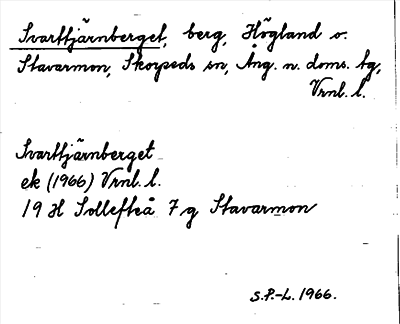 Svarttjärnberget, berg, Högland o.
Stavarmon, Skorpeds sn, Ång. n. doms. bg,
Vrnl. l.
Svarttjärnberget
ek (1966) Vrnl. l.
19 H Sollefteå 7 g Stavarmon
S.P.-L. 1966.